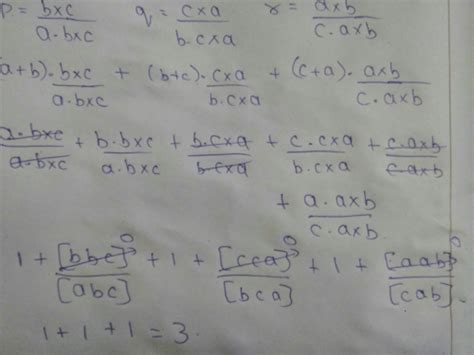 p = b×c / a·b×c   q = c×a / b·c×a   r = a×b / c·a×b
(a+b)· b×c / a·b×c + (b+c)· c×a / b·c×a + (c+a)· a×b / c·a×b
a·b×c / a·b×c + b·b×c / a·b×c + b·c×a / b·c×a + c·c×a / b·c×a + c·a×b / c·a×b
+ a·a×b / c·a×b
1 + [bbc] 0 / [abc] + 1 + [cca] 0 / [bca] + 1 + [aab] 0 / [cab]
1 + 1 + 1 = 3.